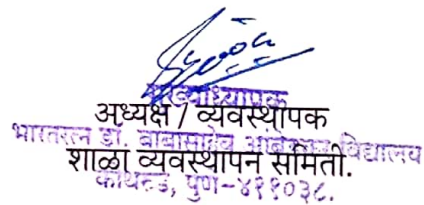 मुख्याध्यापक
अध्यक्ष / व्यवस्थापक
भारतरत्न डॉ. बाबासाहेब आंबेडकर विद्यालय
शाळा व्यवस्थापन समिती.
कोथरुड, पुणे-४११०३८.